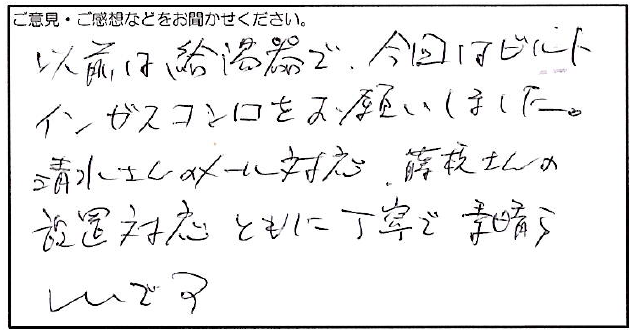 ご意見・ご感想などをお聞かせください。
以前は給湯器で、今回はビルト
インガスコンロをお願いしました。
清水さんのメール対応、藤枝さんの
設置対応ともに丁寧で素晴ら
しいです